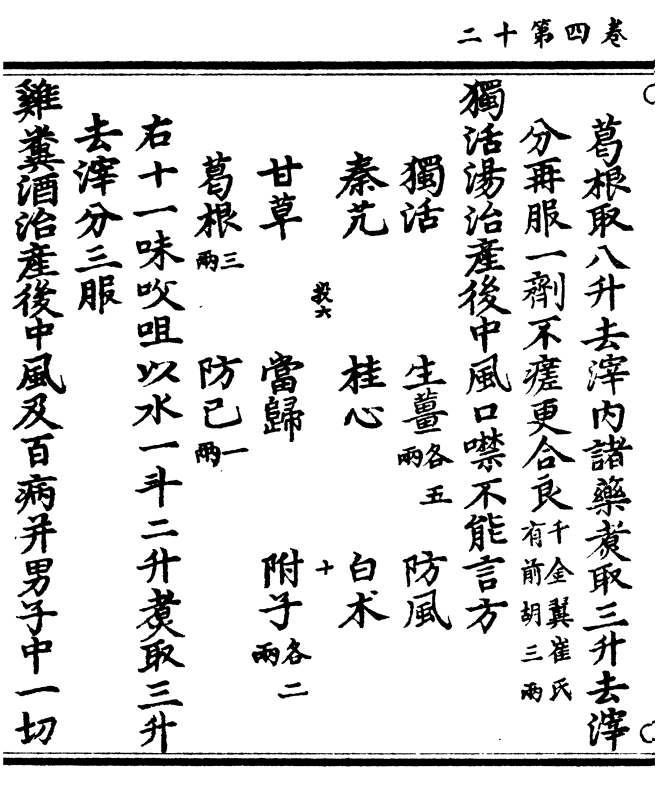 卷四第十二
葛根取八升去滓内諸藥煑取三升去滓
分再服一劑不瘥更合良千金翼崔氏有前胡三兩
獨活湯治產後中風口噤不能言方
獨活 生薑各五兩 防風
秦艽 桂心 白术
六 十
甘草 當歸 附子各二兩
葛根三兩 防己一兩
右十一味㕮咀以水一斗二升煑取三升
去滓分三服
雞糞酒治產後中風及百病并男子中一切